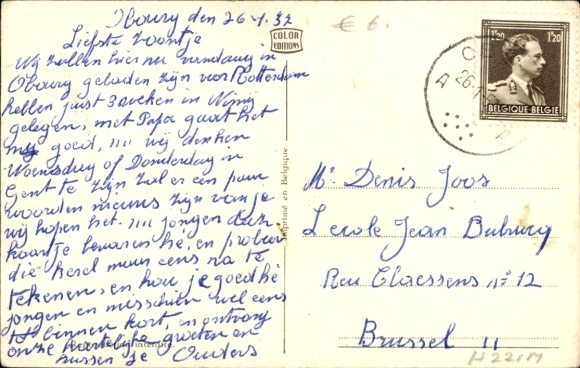 Obourg den 26-1-52
Liefste zoontje
Wij zullen hier nu vandaag in
Obourg geladen zijn voor Rotterdam
hebben juist 3 weken in Nimy
gelegen, met Papa gaat het
goed, nu wij denken
Woensdag of Donderdag in
Gent te zijn zal er een paar
woorden nieuws zijn van je
wij hopen het. nu jongen deze
kaartje bewaren hé, en probeer
die kerel maar eens na te
tekenen, en hou je goed hé
jongen en misschien wel eens
tot binnen kort, en ontvang
onze hartelijke groeten en
kussen je Ouders
COLOR
EDITIONS
Imprimé en Belgique.
€ 6.
1F20 1F20
BELGIQUE·BELGIE
26
A
Mr Denis Joos
Lecole Jean Bubury
Reu Claessens nº 12
Brussel 11
H221M